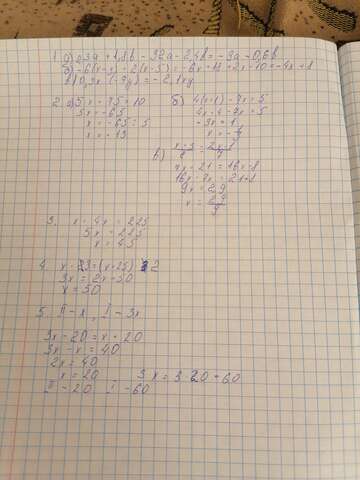 1. а) 23a + 1,8b - 32a - 2,4b = -9a - 0,6b
б) -6(x-x) - 2(x-5) = -6x+18 -2x-10 = -4x+8
в) 0,3x · (-7y) = -2,1xy
2. а) 5x - 75 = 10
5x = -65
x = -65 : 5
x = -13
б) 4(x-1) - 7x = 5
4x-4-7x = 5
-3x = 1
в) x-3 = 2x-1
7x - 21 = 16x - 8
16x - 7x = 21+8
9x = 29
x = 29/9
3. x - 4x = 225
5x = 225
x = 45
4. x - 23 = (x+25) 2
3x = 2x - 50
x = 50
5. II - x, I - 3x
3x - 20 = x + 20
3x - x = 40
2x = 40
x = 20
3x = 3 20 = 60
II - 20 I - 60